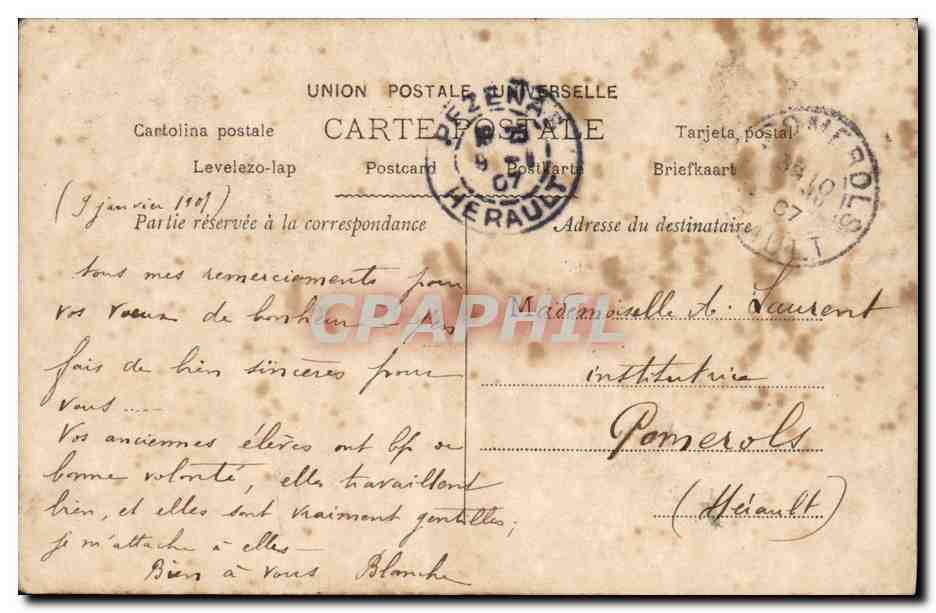 UNION POSTALE UNIVERSELLE
CARTE POSTALE
Cartolina postale
Tarjeta postal
Levelezo-lap
Postcard
Postkarte
Briefkaart
PEZENAS
07
HERAULT
POMEROLS
10
07
HERAULT
(9 janvier 1907)
Partie réservée à la correspondance
Adresse du destinataire
tous mes remerciements pour
vos voeux de bonheur - j'en
fais de bien sincères pour
vous ....
Vos anciennes élèves ont bp de
bonne volonté, elles travaillent
bien, et elles sont vraiment gentilles;
je m'attache à elles -
Bien à vous Blanche
Mademoiselle A. Laurent
institutrice
Pomerols
(Hérault)
CPAPHIL